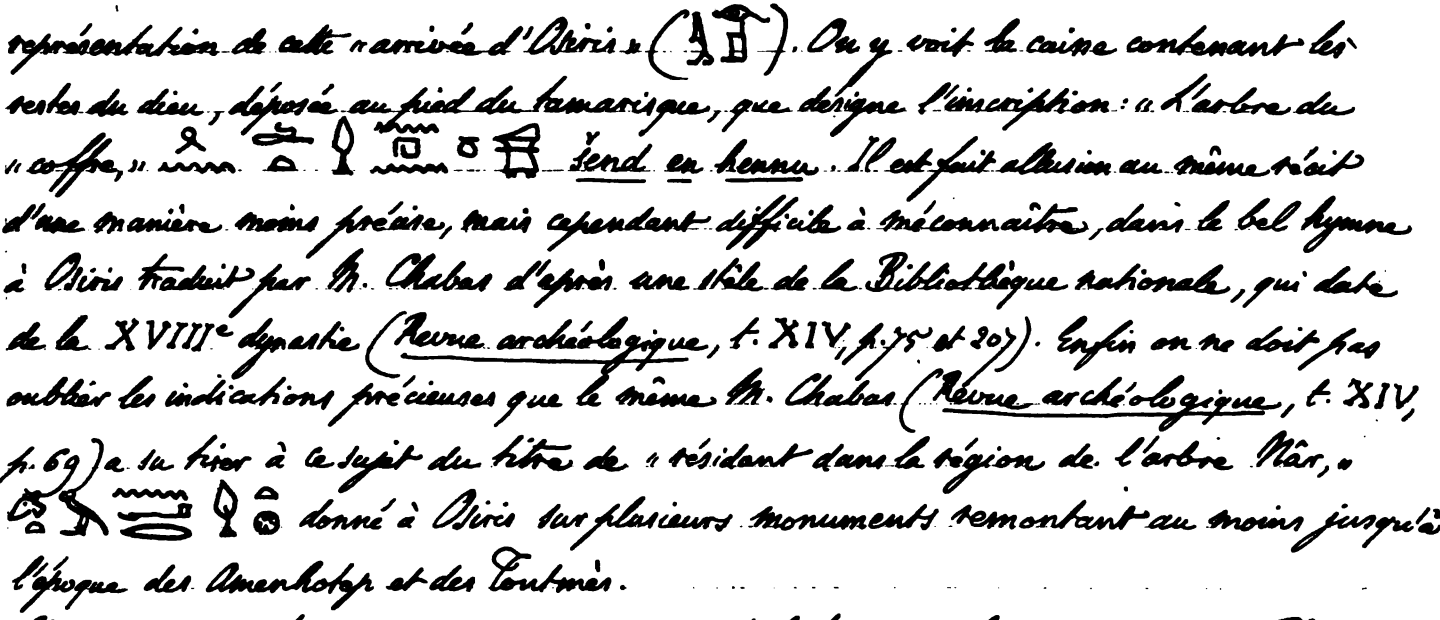 représentation de cette « arrivée d'Osiris » (𓊨𓁹). On y voit la caisse contenant les
restes du dieu, déposée au pied du tamarisque, que désigne l'inscription : « L'arbre du
« coffre, » šend en hennu. Il est fait allusion au même récit
d'une manière moins précise, mais cependant difficile à méconnaître, dans le bel hymne
à Osiris traduit par M. Chabas d'après une stèle de la Bibliothèque nationale, qui date
de la XVIIIe dynastie (Revue archéologique, t. XIV, p. 75 et 207). Enfin on ne doit pas
oublier les indications précieuses que le même M. Chabas (Revue archéologique, t. XIV,
p. 69) a su tirer à ce sujet du titre de « résidant dans la région de l'arbre Nâr, »
donné à Osiris sur plusieurs monuments remontant au moins jusqu'à
l'époque des Amenhotep et des Toutmès.